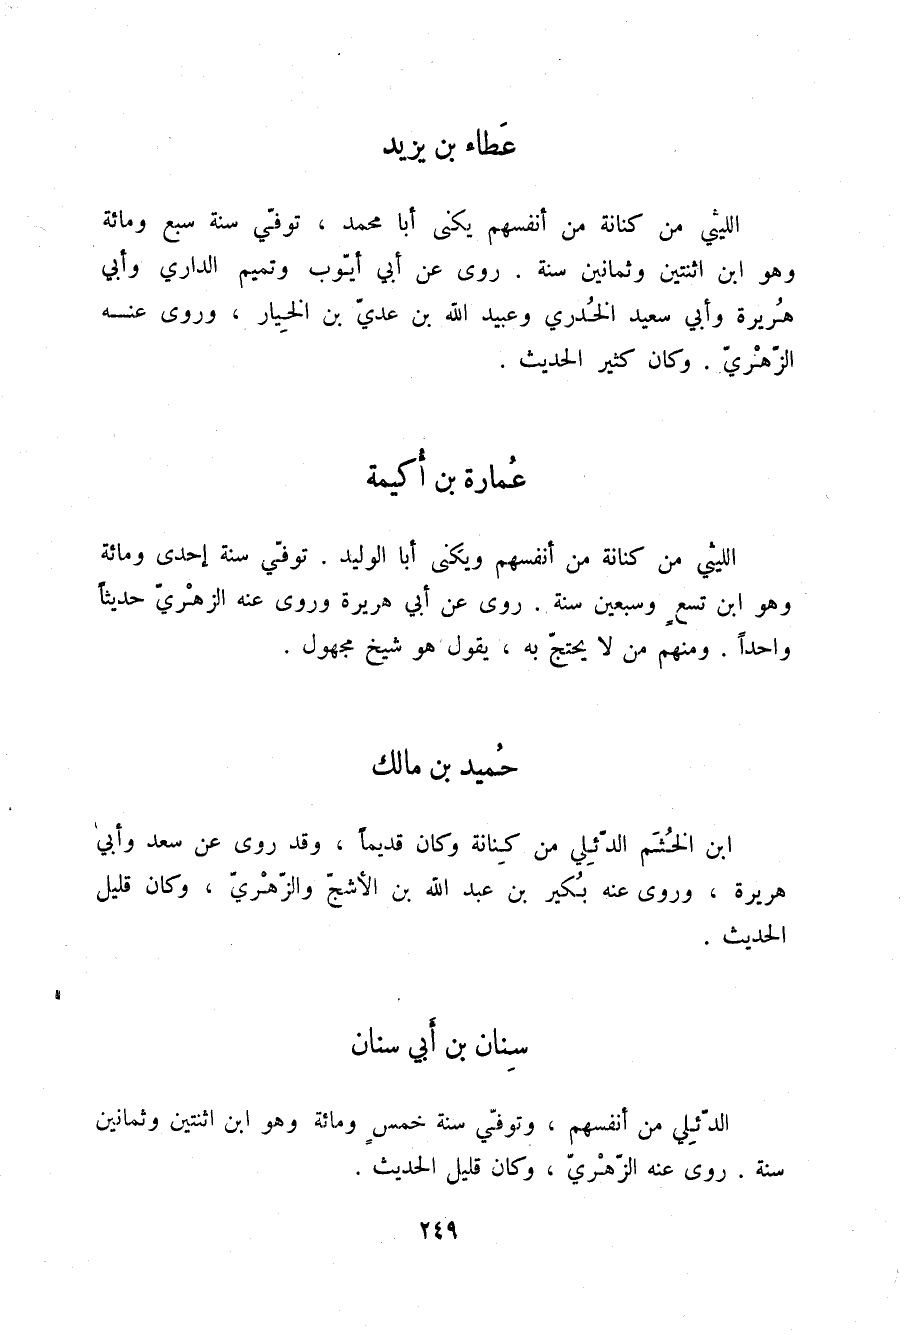 عَطاء بن يزيد
الليثي من كنانة من أنفسهم يكنى أبا محمد ، توفّي سنة سبع ومائة
وهو ابن اثنتين وثمانين سنة . روى عن أبي أيّوب وتميم الداري وأبي
هُريرة وأبي سعيد الخُدري وعبيد الله بن عديّ بن الخِيار ، وروى عنه
الزّهْريّ . وكان كثير الحديث .
عُمارة بن أُكيمة
الليثي من كنانة من أنفسهم ويكنى أبا الوليد . توفّي سنة إحدى ومائة
وهو ابن تسعٍ وسبعين سنة . روى عن أبي هريرة وروى عنه الزهْريّ حديثاً
واحداً . ومنهم من لا يحتجّ به ، يقول هو شيخ مجهول .
حُميد بن مالك
ابن الخُثَم الدّئِلي من كِنانة وكان قديماً ، وقد روى عن سعد وأبي
هريرة ، وروى عنه بُكير بن عبد الله بن الأشجّ والزّهْريّ ، وكان قليل
الحديث .
سِنان بن أَبي سنان
الدّئِلي من أنفسهم ، وتوفّي سنة خمسٍ ومائة وهو ابن اثنتين وثمانين
سنة . روى عنه الزّهْريّ ، وكان قليل الحديث .
٢٤٩